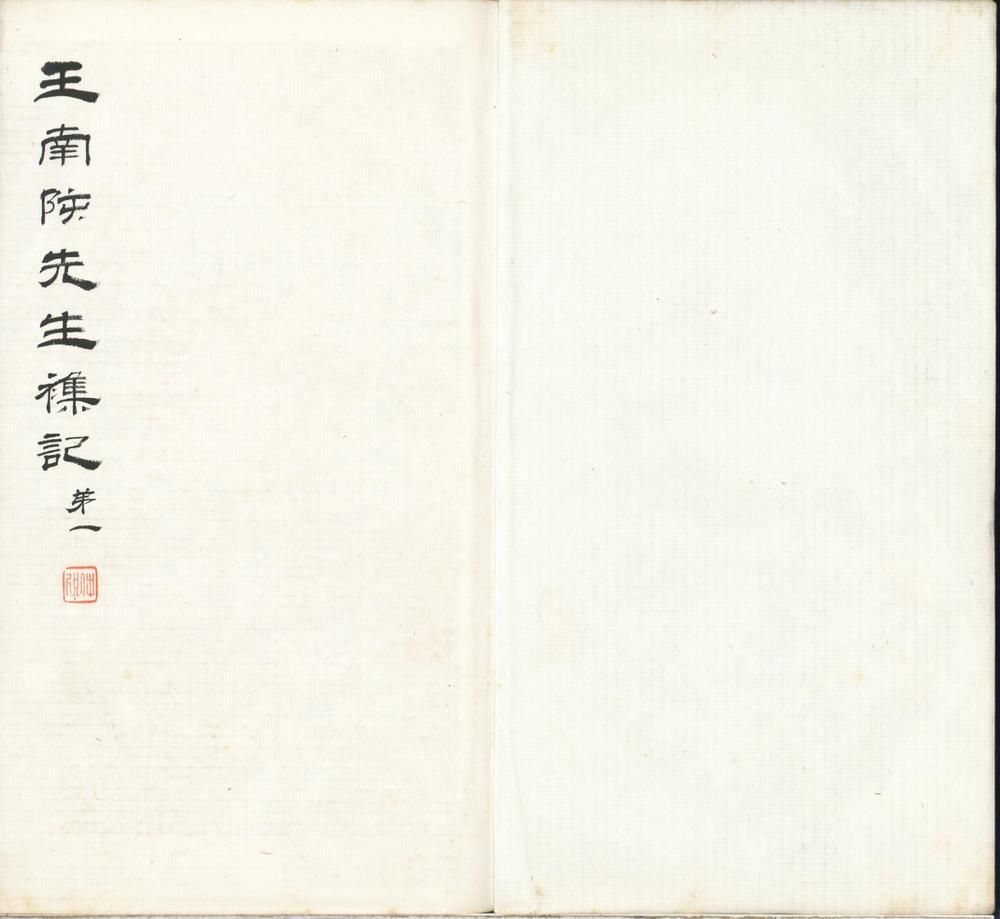 王南陔先生襍記苐一